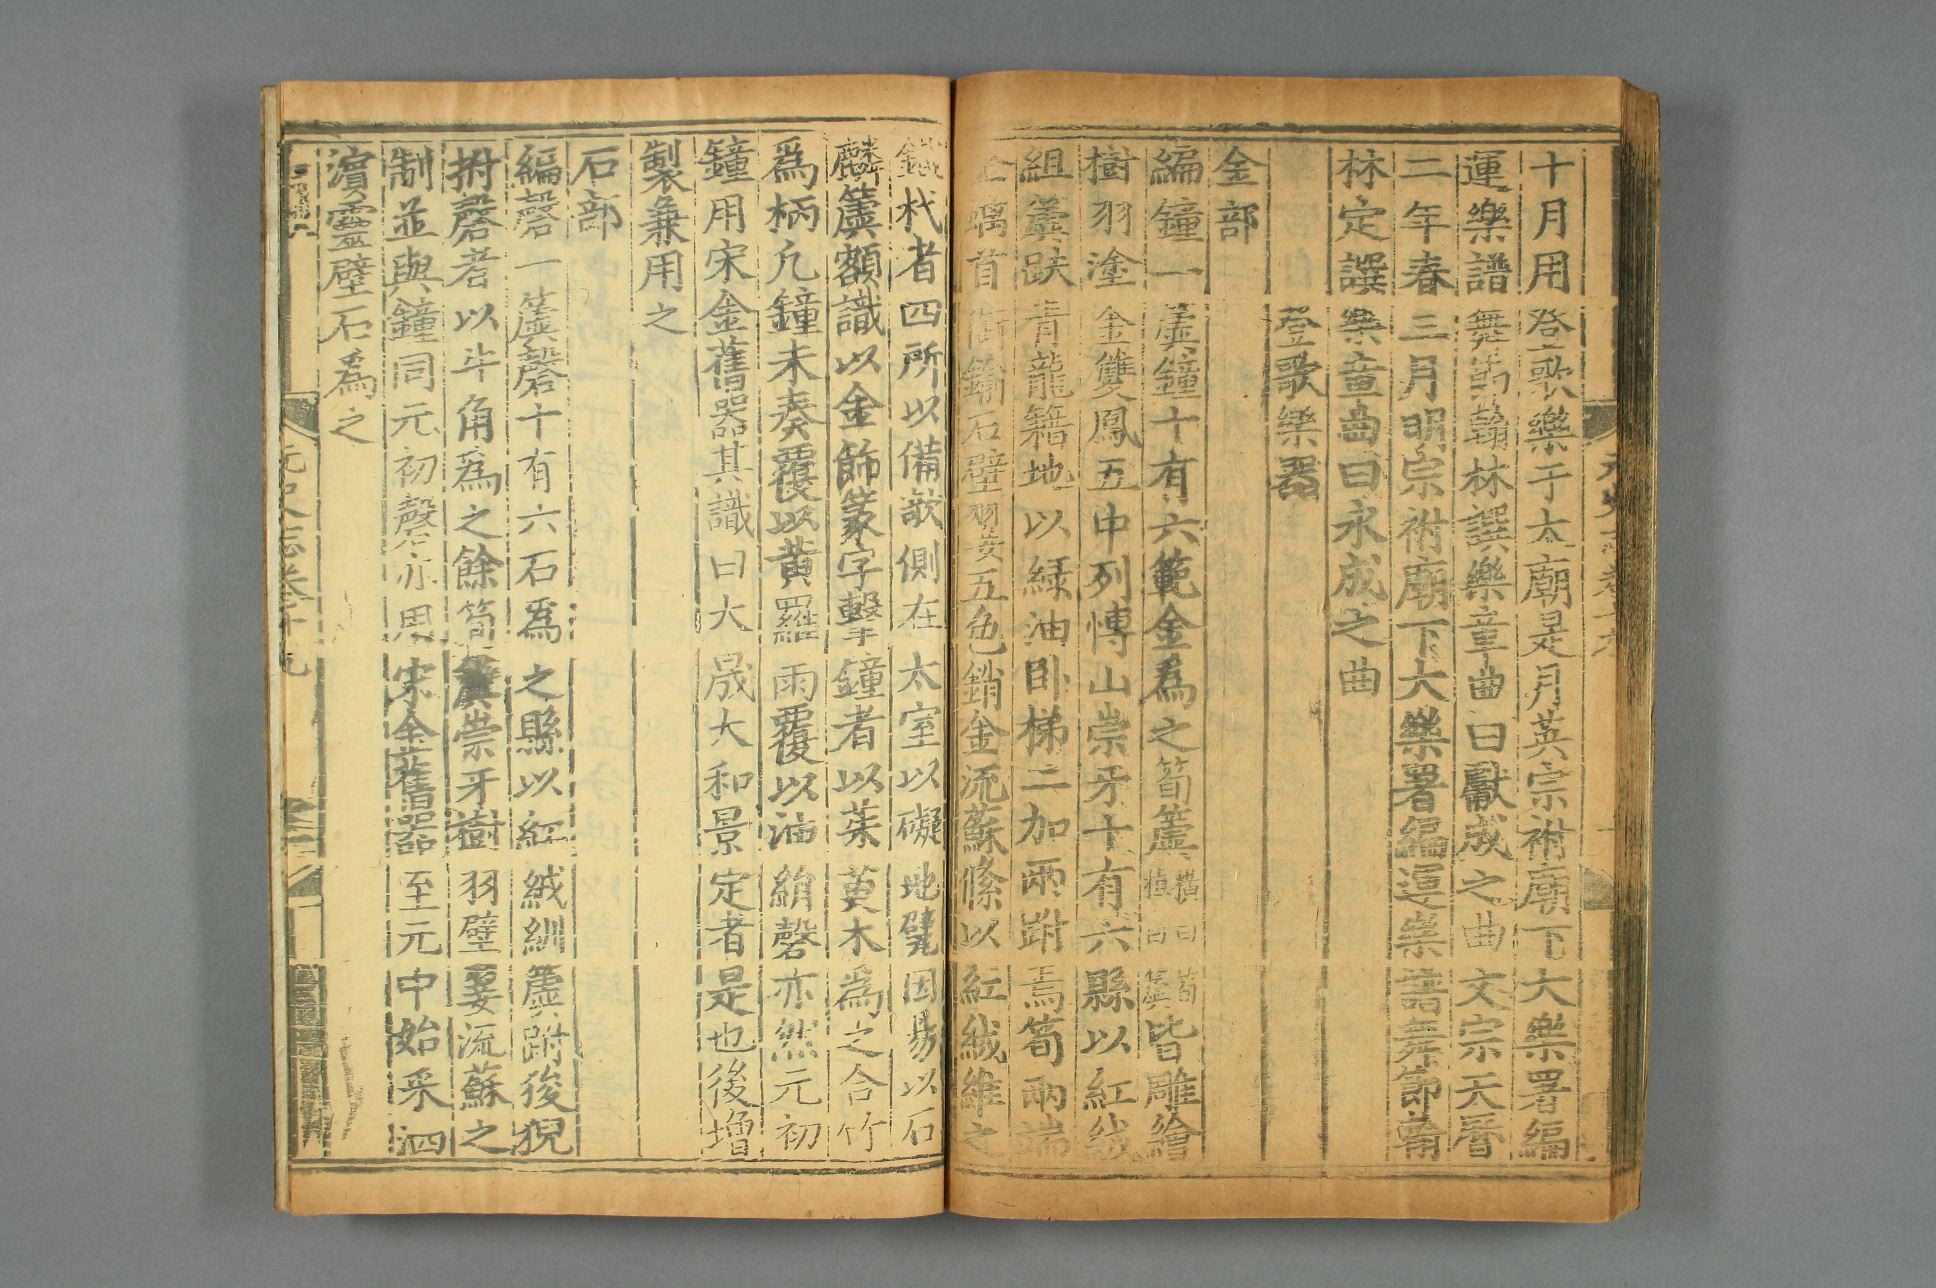 十月用登歌樂于太廟是月英宗祔廟下大樂署編
運樂譜舞節翰林譔樂章曲曰獻成之曲文宗天曆
二年春三月明宗祔廟下大樂署編運樂譜舞節翰
林定譔樂章曲曰永成之曲
登歌樂器
金部
編鐘一簴鐘十有六範金爲之筍簴橫曰筍植曰簴皆雕繪
樹羽塗金雙鳳五中列博山崇牙十有六縣以紅絨
組簴趺青龍籍地以緑油卧梯二加兩跗焉筍兩端
金螭首銜鍮石璧翣五色銷金流蘇絛以紅絨維之
鐵杙者四所以備欹側在太室以礙地甓因易以石
麟簴額識以金飾篆字擊鐘者以茱萸木爲之合竹
爲柄凡鐘未奏覆以黄羅雨覆以油絹磬亦然元初
鐘用宋金舊器其識曰大晟大和景定者是也後增
製兼用之
石部
編磬一簴磬十有六石爲之縣以紅絨紃簴跗後猊
拊磬者以牛角爲之餘筍簴崇牙樹羽璧翣流蘇之
制並與鐘同元初磬亦用宋金舊器至元中始采泗
濵靈壁石爲之
元史志卷十九